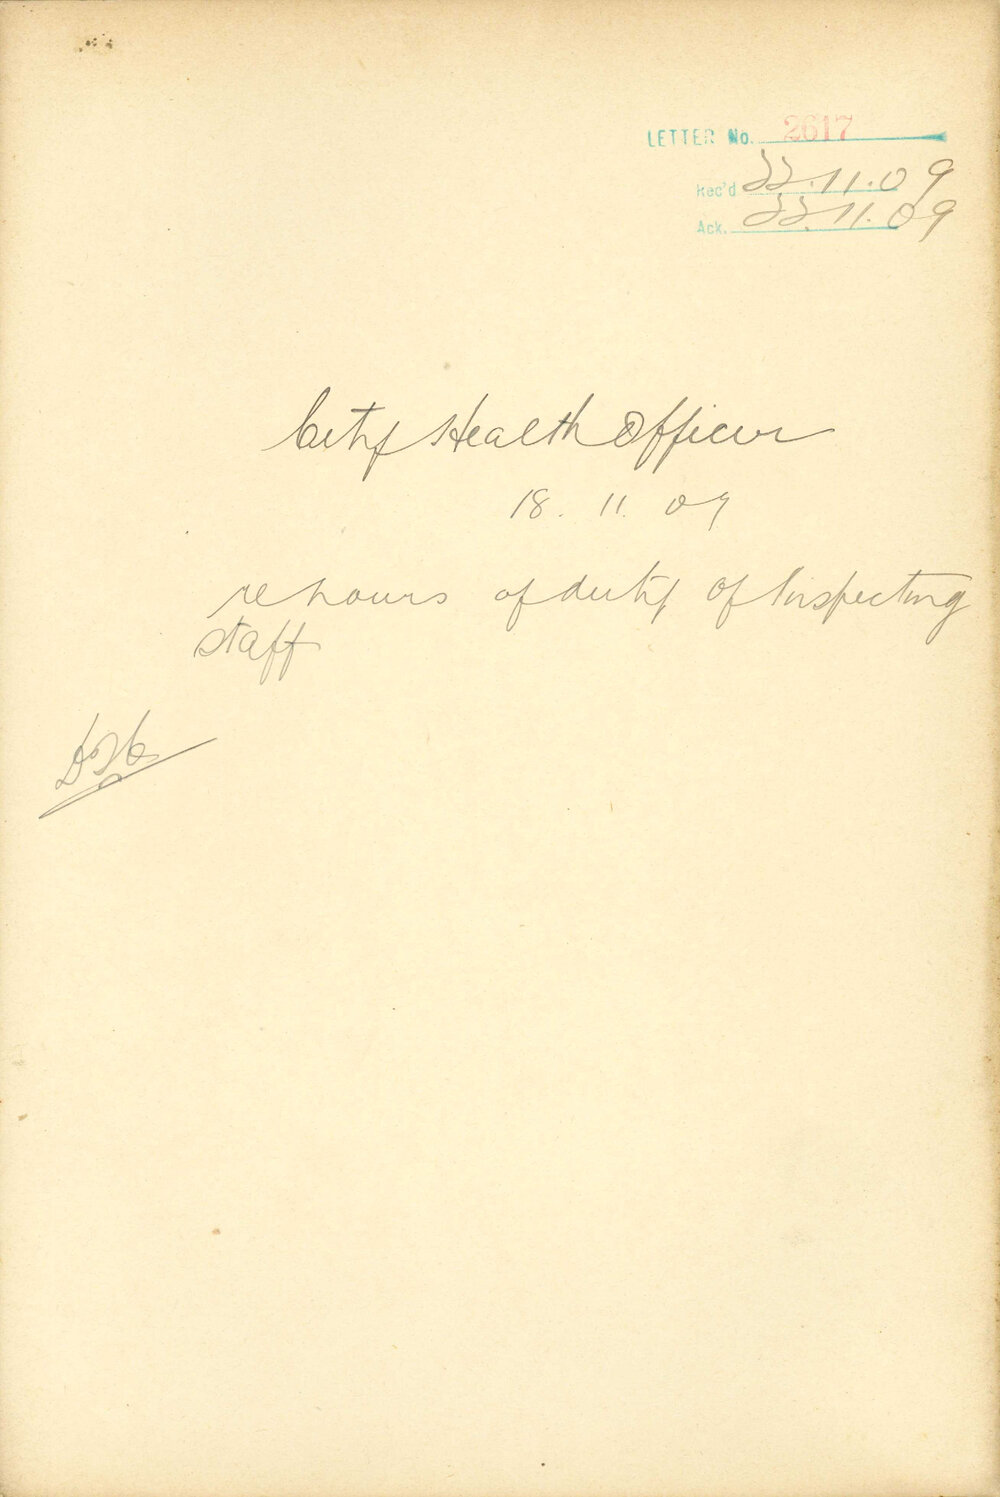 LETTER No. 2617
Rec'd 22.11.09
Ack. 22.11.09
City Health Officer
18. 11. 09
re hours of duty of Inspecting
staff